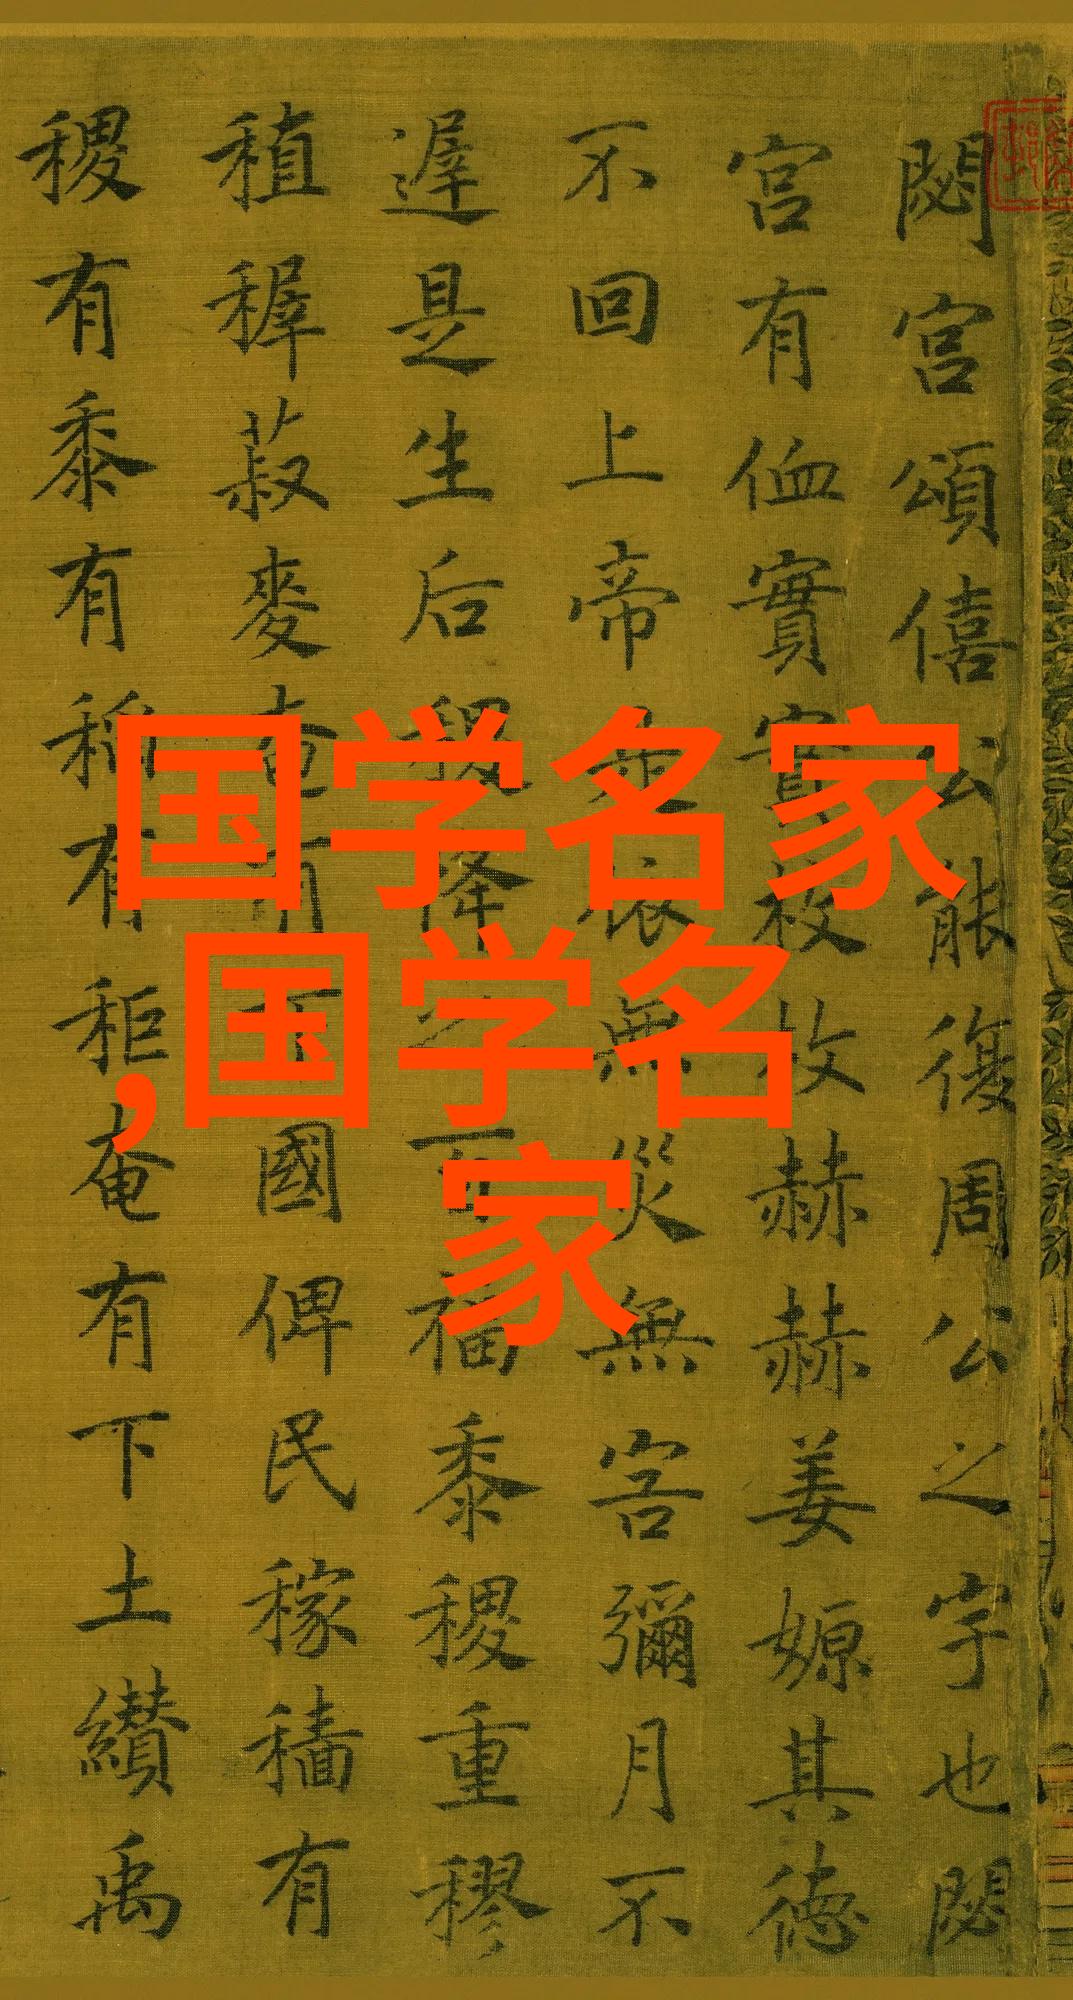 閟宮頌僖公能復周公之宇也閟
宮有侐實實枚枚赫赫姜嫄其德
不回上帝是依無災無害彌月不
遲是生后稷降之百福黍稷重穋
稙稺菽麥奄有下國俾民稼穡有
稷有黍有稻有秬奄有下土纘禹
国学名家
,国学名
家